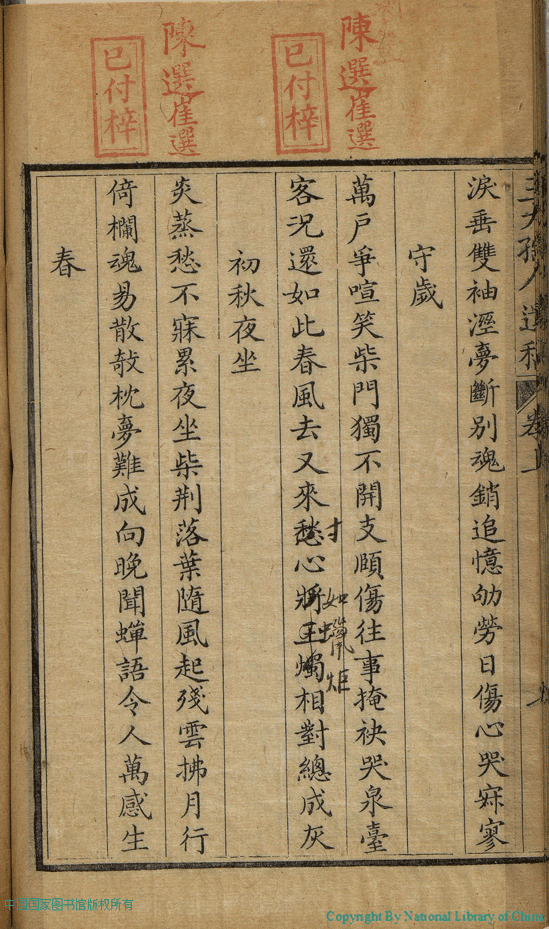 陳選崔選
已付梓
陳選崔選
已付梓
人遺稿 卷上
淚垂雙袖溼夢斷別魂銷追憶劬勞日傷心哭寂寥
守歲
萬戶爭喧笑柴門獨不開支頤傷往事掩袂哭泉臺
寸 如蠟炬
客況還如此春風去又來愁心將玉燭相對總成灰
初秋夜坐
炎蒸愁不寐累夜坐柴荆落葉隨風起殘雲拂月行
倚欄魂易散攲枕夢難成向晚聞蟬語令人萬感生
春
中国国家图书馆版权所有
Copyright By National Library of China